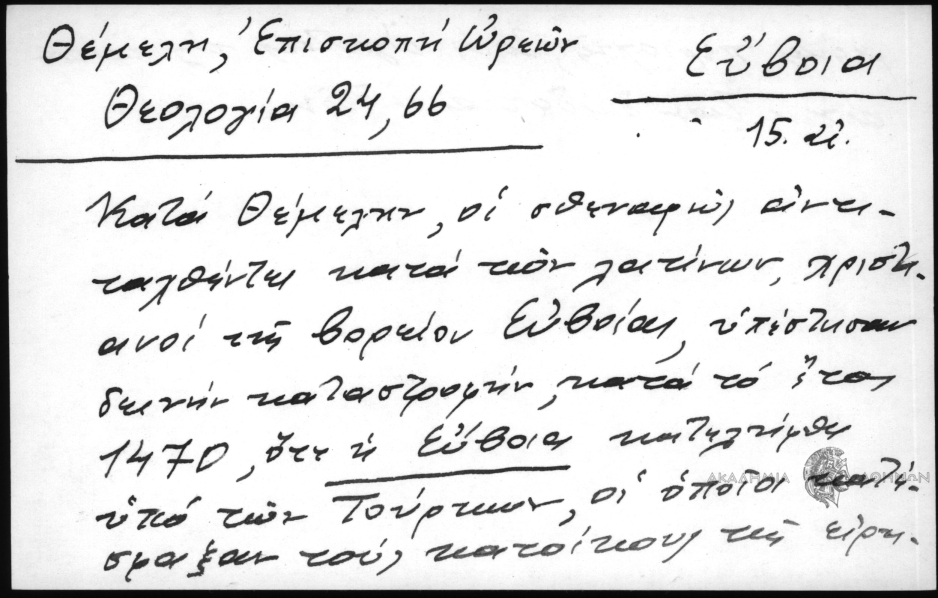 Θέμελη, Ἐπισκοπή Ὠρεῶν
Θεολογία 24, 66
Εὔβοια
15. αἰ.
Κατά Θέμελην, οἱ σθεναρῶς ἀντι-
ταχθέντες κατά τῶν λατίνων, χριστι-
ανοί τῆς βορείου Εὐβοίας, ὑπέστησαν
δεινήν καταστροφήν, κατά τό ἔτος
1470, ὅτε ἡ Εὔβοια κατελήφθη
ὑπό τῶν Τούρκων, οἱ ὁποῖοι κατέ-
σφαξαν τούς κατοίκους τῆς εἰρη-
ΑΚΑΔΗΜΙΑ ΑΘΗΝΩΝ